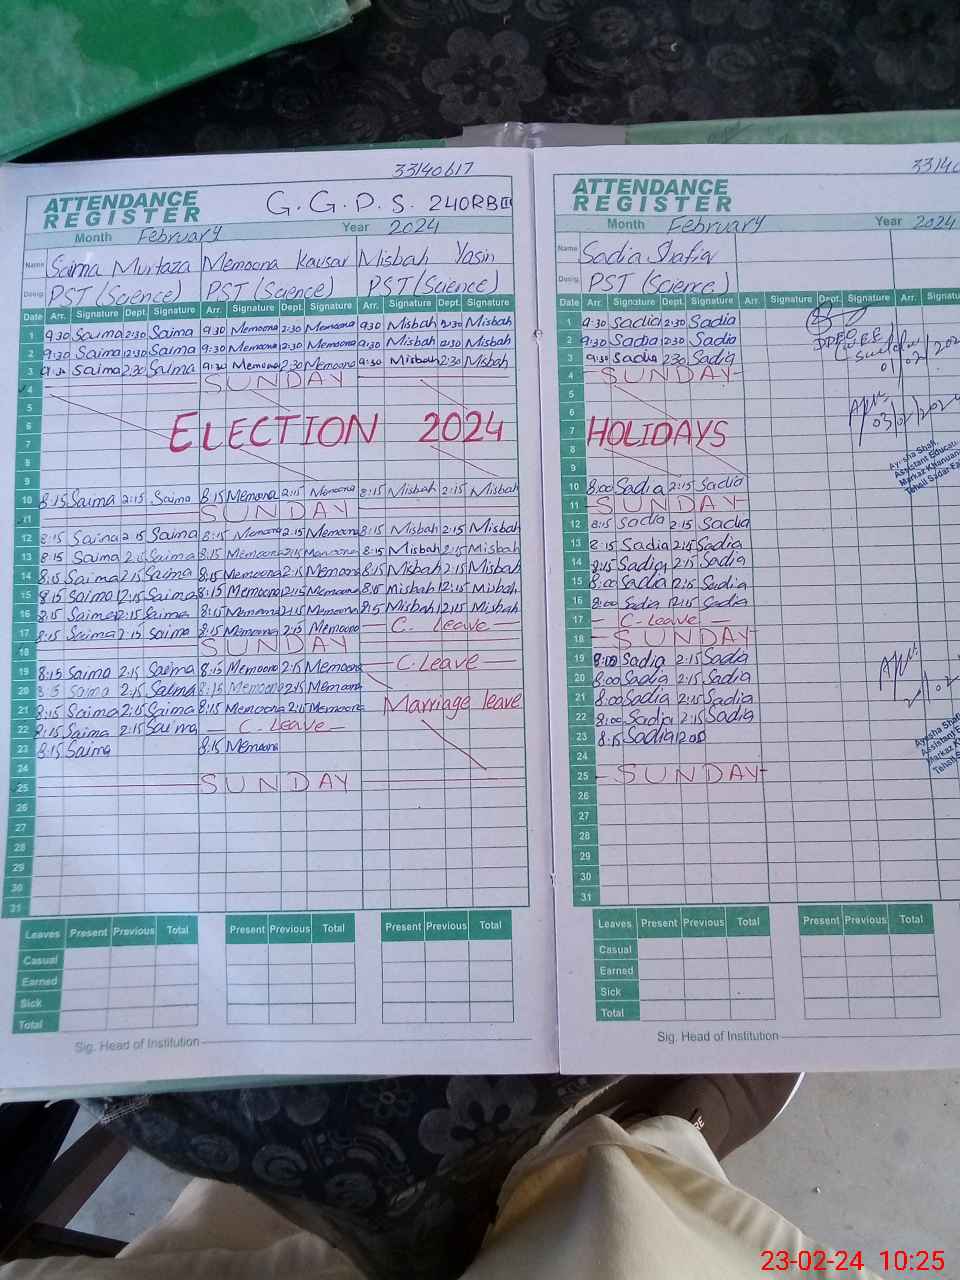 33140617
ATTENDANCE
REGISTER
G.G.P.S. 240RB
Month February Year 2024
Name Saima Murtaza Memoona Kausar Misbah Yasin
Desig. PST (Science) PST (Science) PST (Science)
Date Arr. Signature Dept. Signature Arr. Signature Dept. Signature Arr. Signature Dept. Signature
1 9:30 Saima 2:30 Saima 9:30 Memoona 2:30 Memoona 9:30 Misbah 2:30 Misbah
2 9:30 Saima 2:30 Saima 9:30 Memoona 2:30 Memoona 9:30 Misbah 2:30 Misbah
3 9:30 Saima 2:30 Saima 9:30 Memoona 2:30 Memoona 9:30 Misbah 2:30 Misbah
4 SUNDAY
5
6
7 ELECTION 2024
8
9
10 8:15 Saima 2:15 Saima 8:15 Memoona 2:15 Memoona 8:15 Misbah 2:15 Misbah
11 SUNDAY
12 8:15 Saima 2:15 Saima 8:15 Memoona 2:15 Memoona 8:15 Misbah 2:15 Misbah
13 8:15 Saima 2:15 Saima 8:15 Memoona 2:15 Memoona 8:15 Misbah 2:15 Misbah
14 8:15 Saima 2:15 Saima 8:15 Memoona 2:15 Memoona 8:15 Misbah 2:15 Misbah
15 8:15 Saima 12:15 Saima 8:15 Memoona 12:15 Memoona 8:15 Misbah 12:15 Misbah
16 8:15 Saima 2:15 Saima 8:15 Memoona 12:15 Memoona 8:15 Misbah 12:15 Misbah
17 8:15 Saima 2:15 Saima 8:15 Memoona 2:15 Memoona C. Leave
18 SUNDAY
19 8:15 Saima 2:15 Saima 8:15 Memoona 2:15 Memoona C.Leave
20 8:15 Saima 2:15 Saima 8:15 Memoona 2:15 Memoona
21 8:15 Saima 2:15 Saima 8:15 Memoona 2:15 Memoona Marriage leave
22 8:15 Saima 2:15 Saima C. Leave
23 8:15 Saima 8:15 Memoona
24
25 SUNDAY
26
27
28
29
30
31
Leaves Present Previous Total Present Previous Total Present Previous Total
Casual
Earned
Sick
Total
Sig. Head of Institution
33140
ATTENDANCE
REGISTER
Month February Year 2024
Name Sadia Shafiq
Desig. PST (Science)
Date Arr. Signature Dept. Signature Arr. Signature Dept. Signature Arr.
1 9:30 Sadia 2:30 Sadia
2 9:30 Sadia 2:30 Sadia
3 9:30 Sadia 2:30 Sadia
4 SUNDAY
5
6
7 HOLIDAYS
8
9
10 8:00 Sadia 2:15 Sadia
11 SUNDAY
12 8:15 Sadia 2:15 Sadia
13 8:15 Sadia 2:15 Sadia
14 8:15 Sadia 2:15 Sadia
15 8:00 Sadia 2:15 Sadia
16 8:00 Sadia 12:15 Sadia
17 C-Leave
18 SUNDAY
19 8:00 Sadia 2:15 Sadia
20 8:00 Sadia 2:15 Sadia
21 8:00 Sadia 2:15 Sadia
22 8:00 Sadia 2:15 Sadia
23 8:15 Sadia
24
25 SUNDAY
26
27
28
29
30
31
Ayesha Shafi
Assistant Educati
Markaz Khanuan
Tehsil Sadar
Ayesha Shafi
Assistant
Markaz
Tehsil
Leaves Present Previous Total Present Previous Total
Casual
Earned
Sick
Total
Sig. Head of Institution
23-02-24 10:25